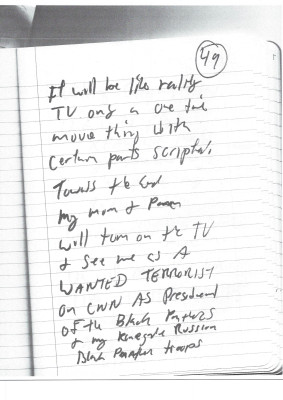 49
It will be like reality
TV only a one time
movie thing with
certain parts scripted.
Towards the end
my mom &
will turn on the TV
& see me as A
WANTED TERRORIST
on CNN AS President
of the Black Panthers
& my Renegade Russian
Black Panther troops